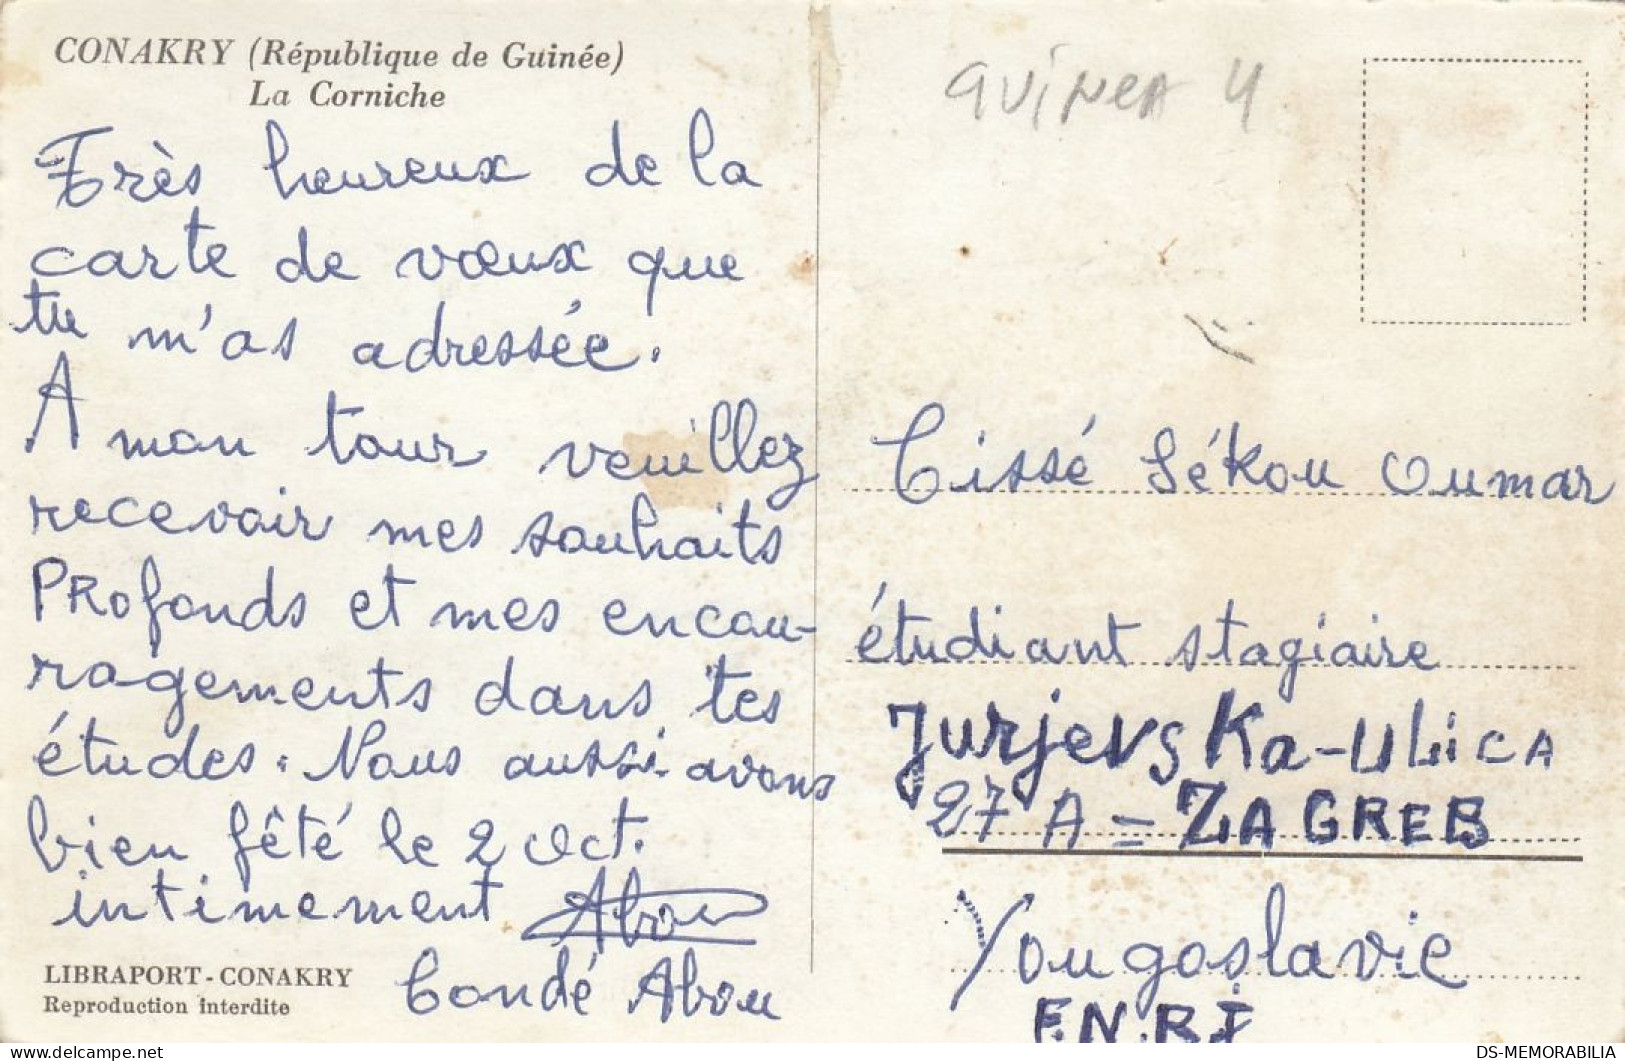 CONAKRY (République de Guinée)
La Corniche
Très heureux de la
carte de vœux que
tu m'as adressée.
A mon tour veuillez
recevoir mes souhaits
PRofonds et mes encou-
ragements dans tes
études. Nous aussi avons
bien fêté le 2 Oct.
intimement Abou
Condé Abou
LIBRAPORT - CONAKRY
Reproduction interdite
GUINEA 4
Cissé Sékou Oumar
étudiant stagiaire
Jurjevska-ULiCA
27 A = ZAGREB
Yougoslavie
F.N.R.J
DS-MEMORABILIA